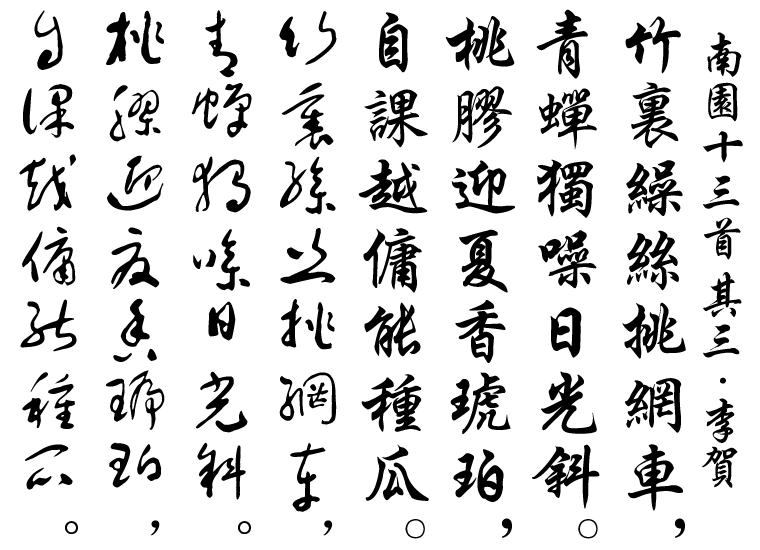 南園十三首其三·李賀
竹裏繰絲挑網車，
青蟬獨噪日光斜。
桃膠迎夏香琥珀，
自課越傭能種瓜。
竹裏繰絲挑網車，
青蟬獨噪日光斜。
桃膠迎夏香琥珀，
自課越傭能種瓜。